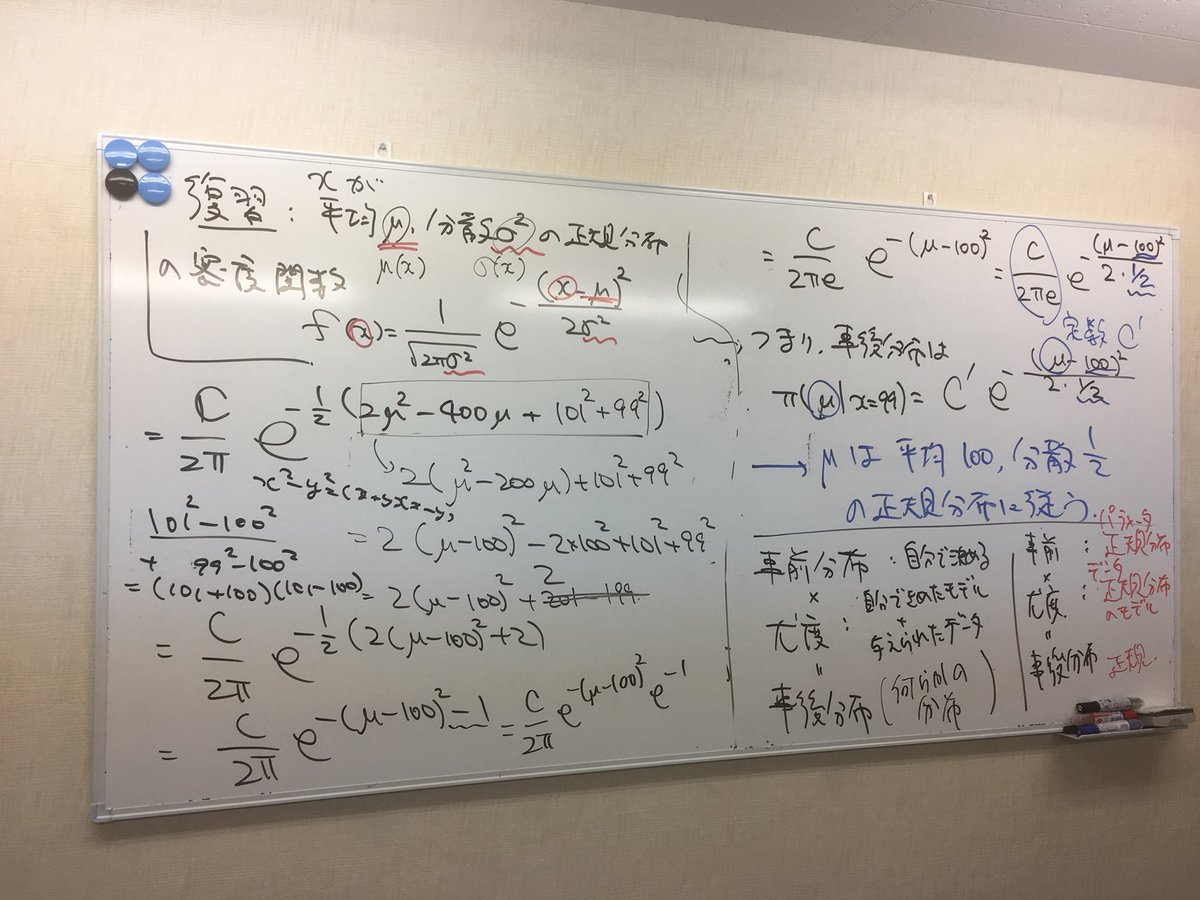 復習: xが
平均μ, 分散σ²の正規分布
μ(x) σ(x)
の密度関数
f(x) = 1/√(2πσ²) e^{-(x-μ)²/(2σ²)}
= C/2π e^{-1/2(2μ²-400μ+101²+99²)}
2(μ²-200μ)+101²+99²
x²-y²=(x+y)(x-y)
101²-100²
+ 99²-100²
= 2(μ-100)²-2×100²+101²+99²
=(101+100)(101-100)
= 2(μ-100)²+2
= C/2π e^{-1/2(2(μ-100)²+2)}
= C/2π e^{-(μ-100)²-1} = C/2π e^{-(μ-100)²} e^{-1}
= C/2πe e^{-(μ-100)²} = C/2πe e^{-(μ-100)²/(2・1/2)}
定数 C'
つまり, 事後分布は
π(μ|x=99) = C' e^{-(μ-100)²/(2・1/2)}
→ μは平均100, 分散1/2
の正規分布に従う.
事前分布: 自分で決める
×
尤度: 自分できめたモデル
+
与えられたデータ
"
事後分布 (何らかの
分布)
パラメータ
事前: 正規分布
×
データ
尤度: 正規分布
のモデル
"
事後分布 正規.